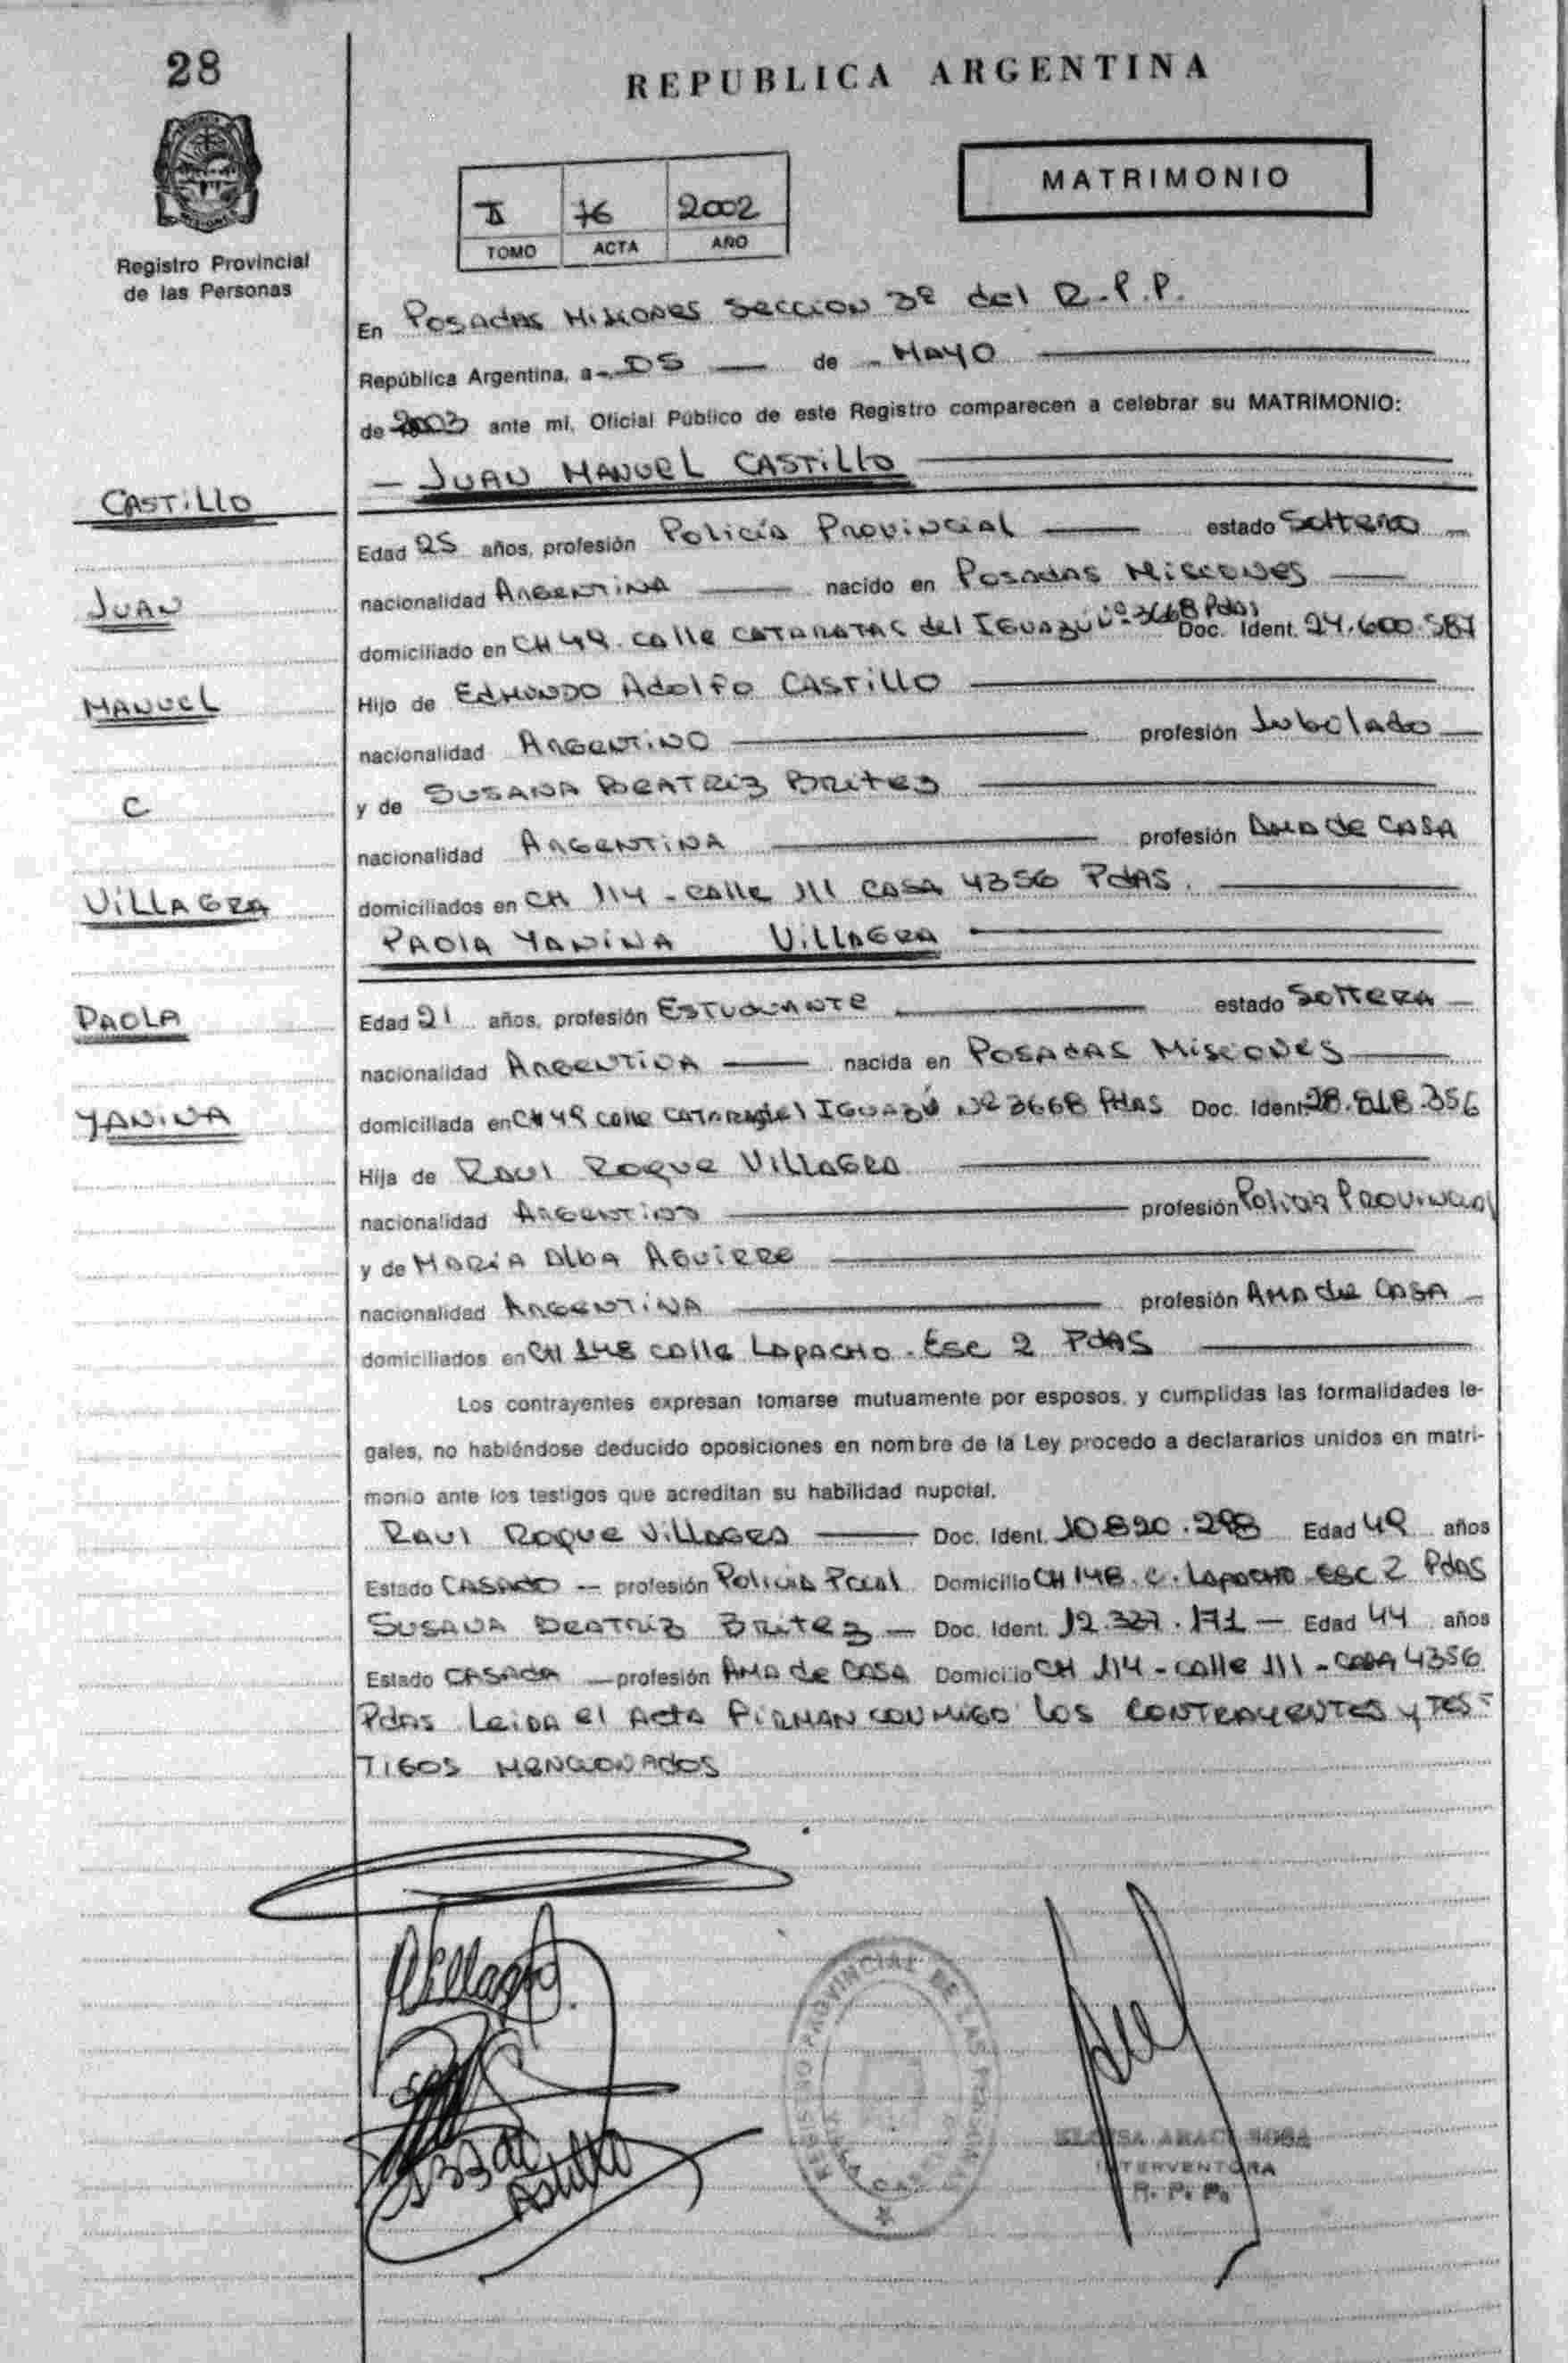 28
REPUBLICA ARGENTINA
MATRIMONIO
II 76 2002
TOMO ACTA AÑO
Registro Provincial
de las Personas
En Posadas Misiones Seccion 3º del R.P.P.
República Argentina, a - 05 — de - MAYO
de ante mi, Oficial Público de este Registro comparecen a celebrar su MATRIMONIO:
- JUAN MANUEL CASTILLO
CASTILLO
Edad 25 años, profesión Policía Provincial estado Soltero
JUAN
nacionalidad ARGENTINA nacido en Posadas Misiones
domiciliado en CH 49. calle CATARATAS del IGUAZÚ Nº 3668 Pdas Doc. Ident. 24.600.587
MANUEL
Hijo de EDMUNDO Adolfo CASTILLO
nacionalidad ARGENTINO profesión Jubilado
C
y de SUSANA BEATRIZ Britez
nacionalidad ARGENTINA profesión AMA de CASA
VILLAGRA
domiciliados en CH 114 - calle 111 CASA 4356 PdAS.
PAOLA YANINA VILLAGRA
PAOLA
Edad 21 años, profesión ESTUDIANTE estado Soltera
nacionalidad ARGENTINA nacida en POSADAS Misiones
YANINA
domiciliada en CH 49 calle CATARATAS del IGUAZÚ Nº 3668 PdAS Doc. Ident. 28.818.356
Hija de RAUL ROQUE VILLAGRA
nacionalidad ARGENTINO profesión Policía PROVINCIAL
y de MARIA Alba AGUIRRE
nacionalidad ARGENTINA profesión AMA de CASA
domiciliados en CH 148 calle LAPACHO - Esc 2 PdAS
Los contrayentes expresan tomarse mutuamente por esposos, y cumplidas las formalidades le-
gales, no habiéndose deducido oposiciones en nombre de la Ley procedo a declararlos unidos en matri-
monio ante los testigos que acreditan su habilidad nupcial.
RAUL ROQUE VILLAGRA Doc. Ident. 10.820.298 Edad 49 años
Estado CASADO - profesión Policía Pcial Domicilio CH 148. C. LAPACHO ESC 2 PdAS
SUSANA BEATRIZ Britez - Doc. Ident. 12.327.171 - Edad 44 años
Estado CASADA - profesión AMA de CASA Domicilio CH 114 - calle 111 - CASA 4356
Pdas Leida el Acta FIRMAN CONMIGO los CONTRAYENTES y TES-
TIGOS MENCIONADOS
Villagra
REGISTRO PROVINCIAL DE LAS PERSONAS
SOSA
INTERVENTORA
R. P. P.